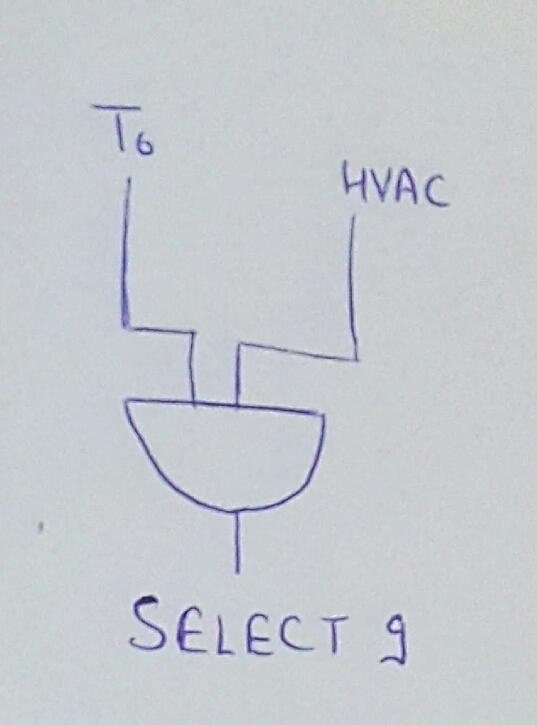 T̅6
HVAC
SELECT 9